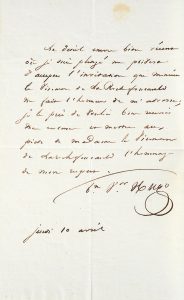 Le deuil encore bien récent
où je suis plongé m'empêchera
d'accepter l'invitation que monsieur
le Vicomte de La Rochefoucauld
me fait l'honneur de m'adresser,
je le prie de vouloir bien recevoir
mes et mettre aux
pieds de madame la Vicomtesse
de Larochefoucauld l'hommage
de mon respect.
Vor Hugo
jeudi 10 avril